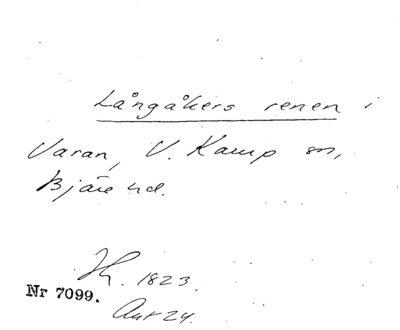 Långåkers renen i
Varan, V. Karup sn,
Bjäre hd.
Hh. 1823.
Nr 7099.
Ant 24.